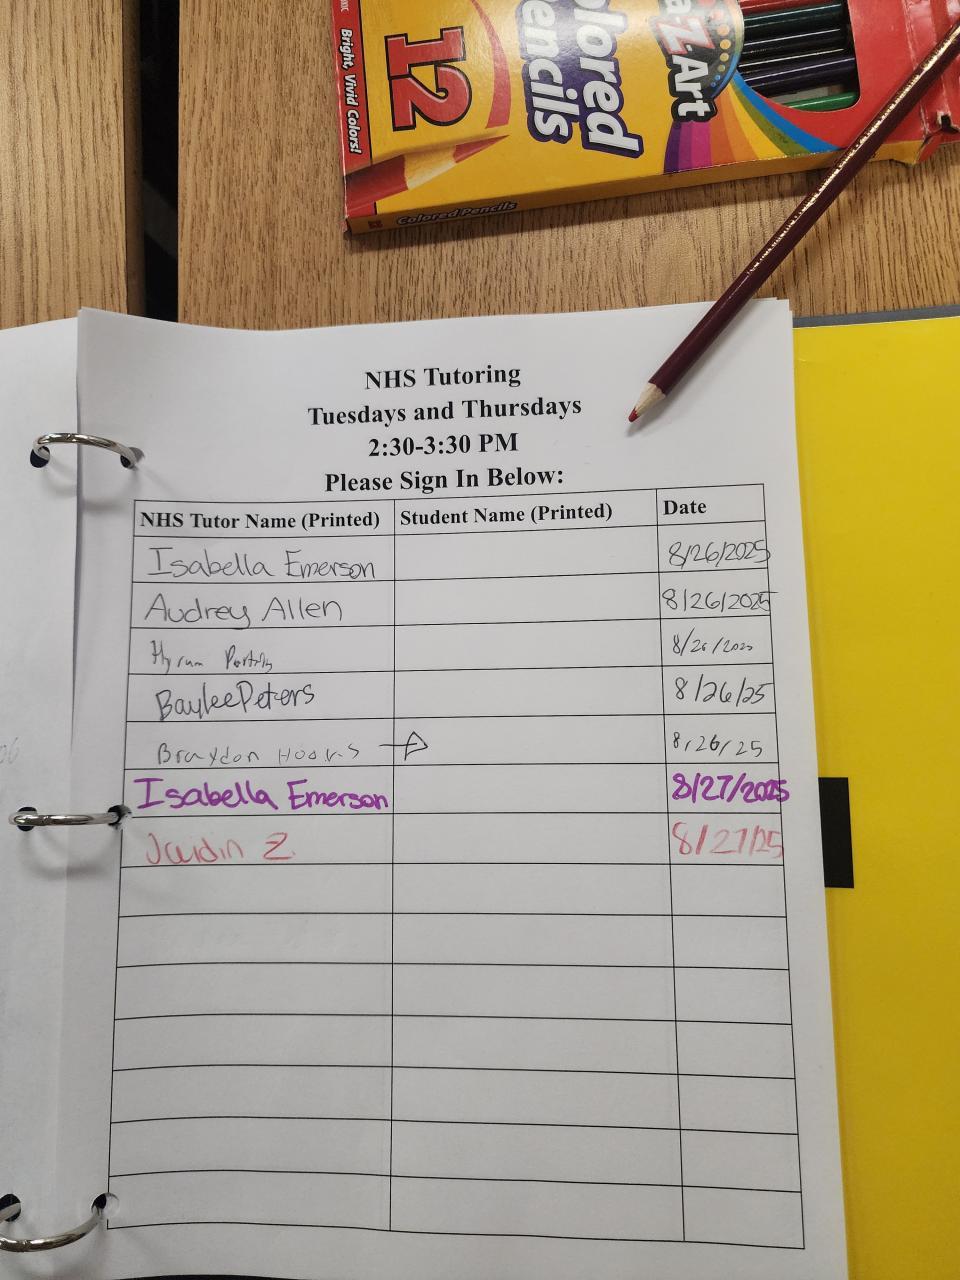 Bright, Vivid Colors!
12
Colored Pencils
Colored Pencils
NHS Tutoring
Tuesdays and Thursdays
2:30-3:30 PM
Please Sign In Below:
NHS Tutor Name (Printed) Student Name (Printed) Date
Isabella Emerson 8/26/2025
Audrey Allen 8/26/2025
Hyrum
Baylee Peters 8/26/25
Braydon 8/26/25
Isabella Emerson 8/27/2025
Z 8/27/25